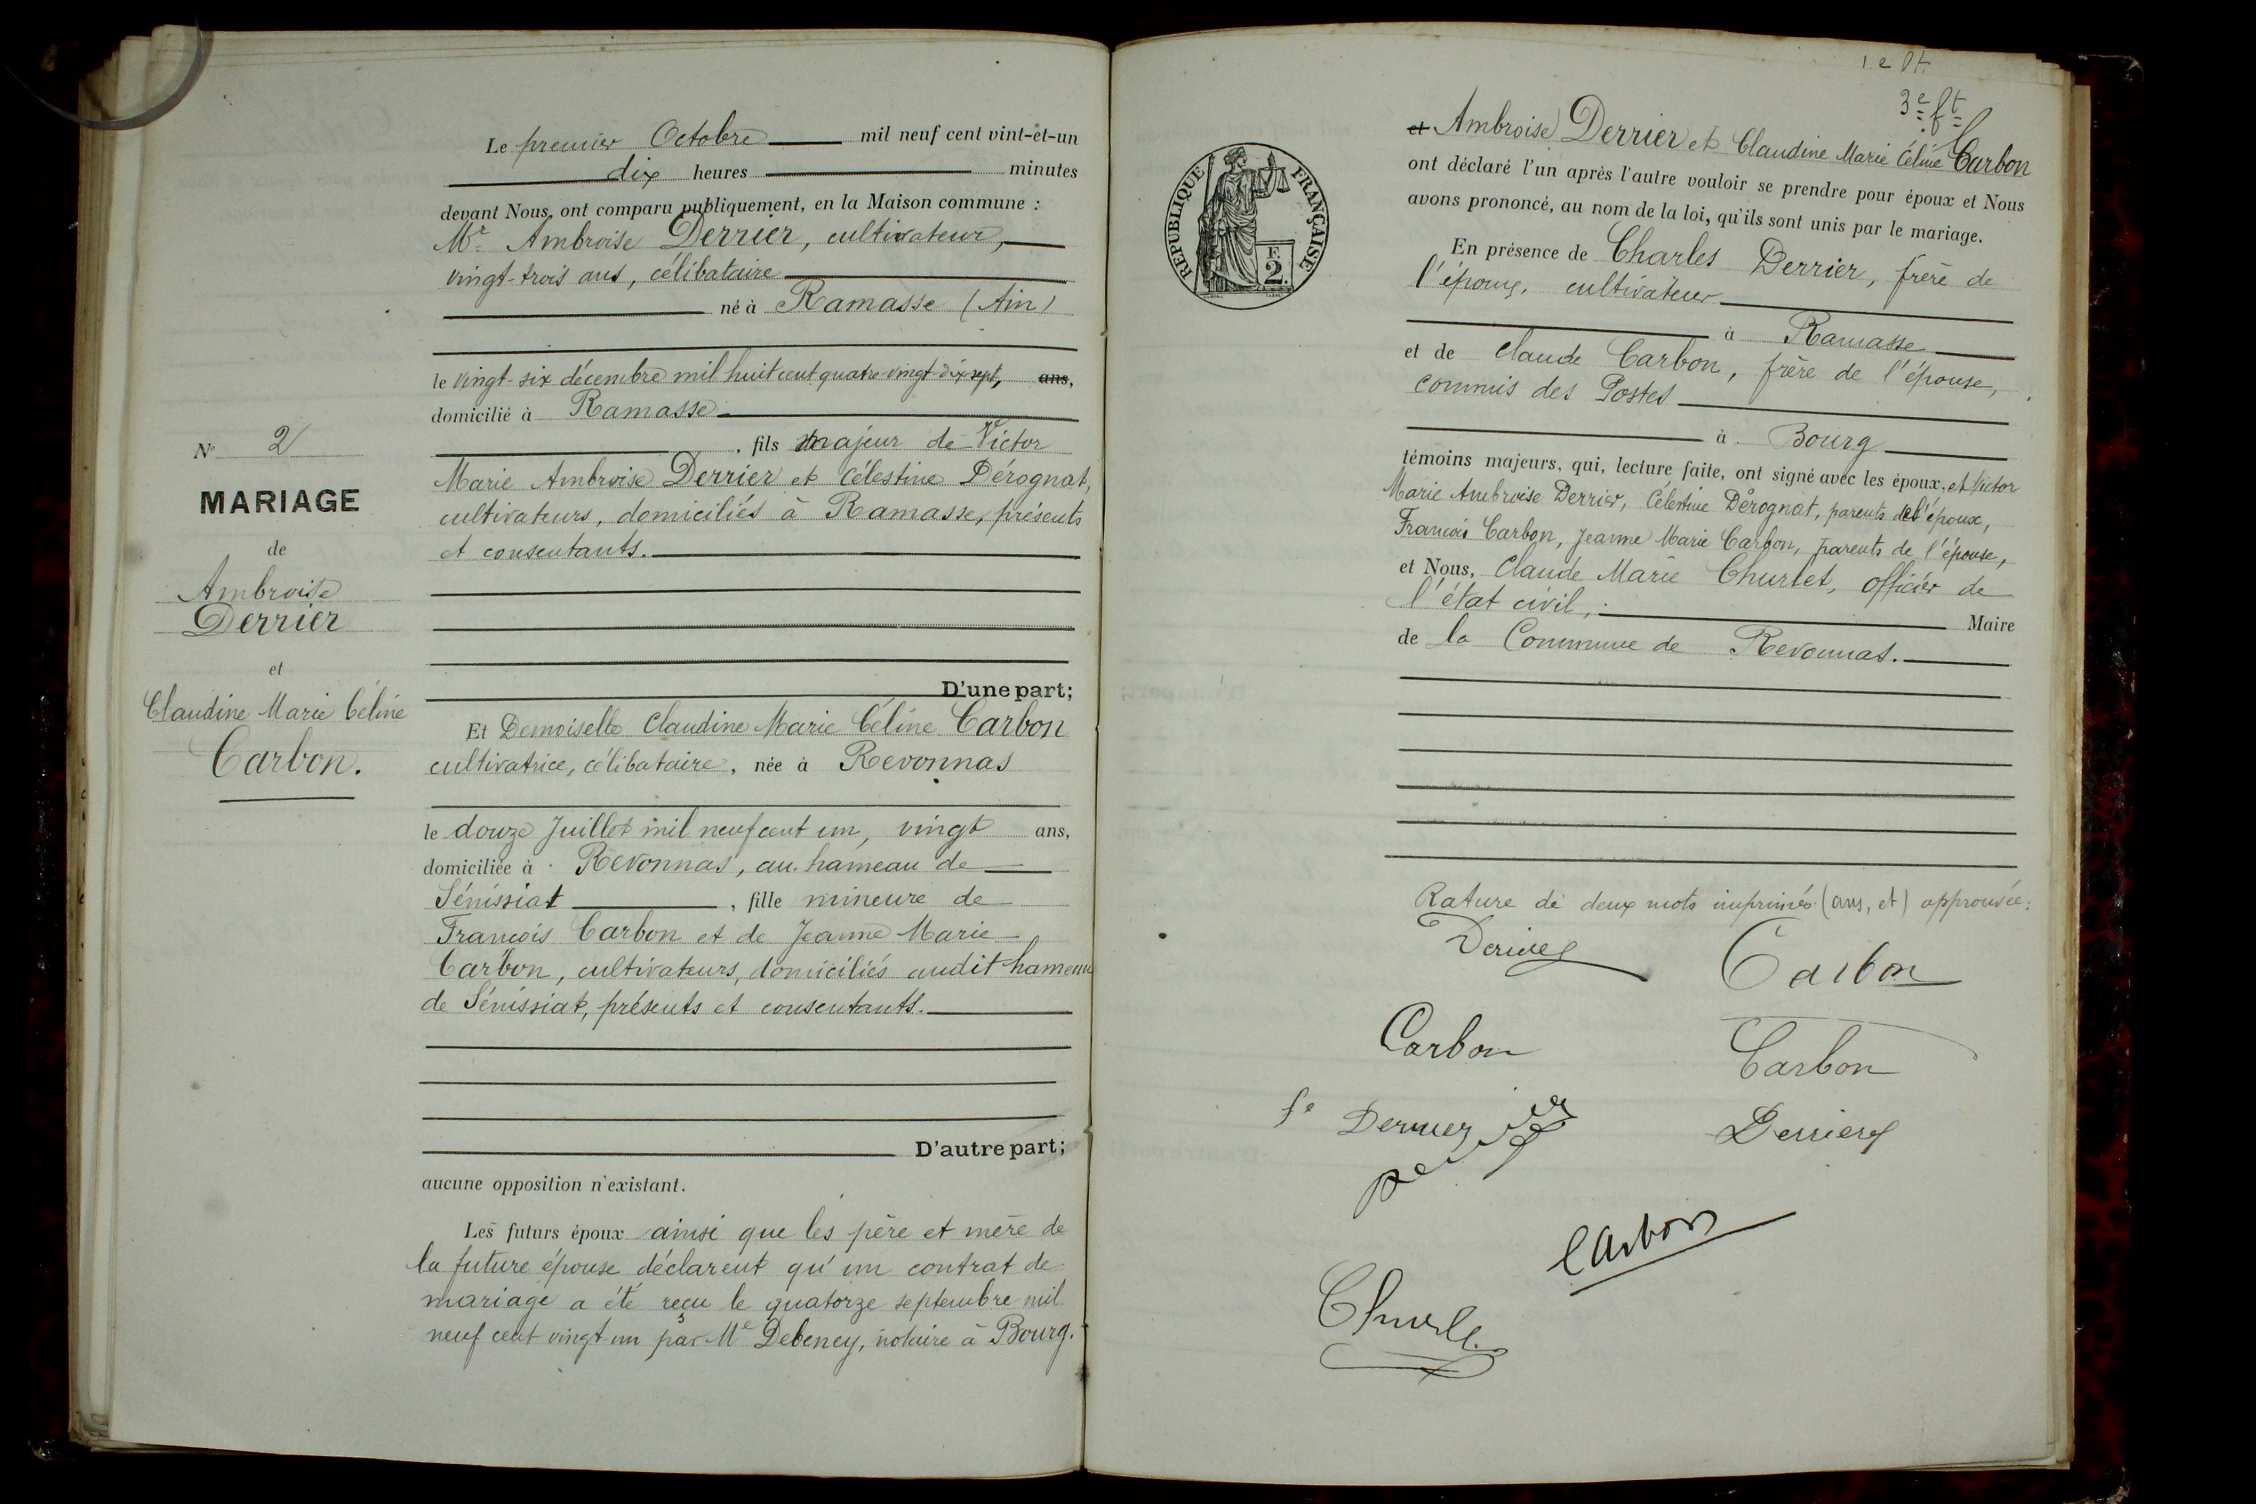 Le premier Octobre mil neuf cent vint-et-un
dix heures minutes
devant Nous, ont comparu publiquement, en la Maison commune :
Mr Ambroise Derrier, cultivateur,
vingt-trois ans, célibataire
né à Ramasse (Ain)
le vingt-six décembre mil huit cent quatre-vingt-dix sept, ans,
domicilié à Ramasse
, fils majeur de Victor
Marie Ambroise Derrier et Célestine Dérognat,
cultivateurs, domiciliés à Ramasse, présents
et consentants.
D'une part;
Et Demoiselle Claudine Marie Céline Carbon
cultivatrice, célibataire, née à Revonnas
le douze Juillet mil neuf cent un, vingt ans,
domiciliée à Revonnas, au hameau de
Sénissiat, fille mineure de
François Carbon et de Jeanne Marie
Carbon, cultivateurs, domiciliés audit hameau
de Sénissiat, présents et consentants.
D'autre part;
aucune opposition n'existant.
Les futurs époux ainsi que les père et mère de
la future épouse déclarent qu'un contrat de
mariage a été reçu le quatorze septembre mil
neuf cent vingt-un par Me Debeney, notaire à Bourg.
No 2
MARIAGE
de
Ambroise
Derrier
et
Claudine Marie Céline
Carbon.
3e ft
RÉPUBLIQUE FRANÇAISE
F.
2.
et Ambroise Derrier et Claudine Marie Céline Carbon
ont déclaré l'un après l'autre vouloir se prendre pour époux et Nous
avons prononcé, au nom de la loi, qu'ils sont unis par le mariage.
En présence de Charles Derrier, frère de
l'époux, cultivateur
à Ramasse
et de Claude Carbon, frère de l'épouse,
commis des Postes
à Bourg
témoins majeurs, qui, lecture faite, ont signé avec les époux, et Victor
Marie Ambroise Derrier, Célestine Dérognat, parents de l'époux,
François Carbon, Jeanne Marie Carbon, parents de l'épouse,
et Nous, Claude Marie Churlet, officier de
l'état civil, Maire
de la Commune de Revonnas.
Rature de deux mots imprimés (ans, et) approuvée:
Derrier
Carbon
Carbon
Carbon
fe Derrier
Derrier
Derrier
Carbon
Churlet